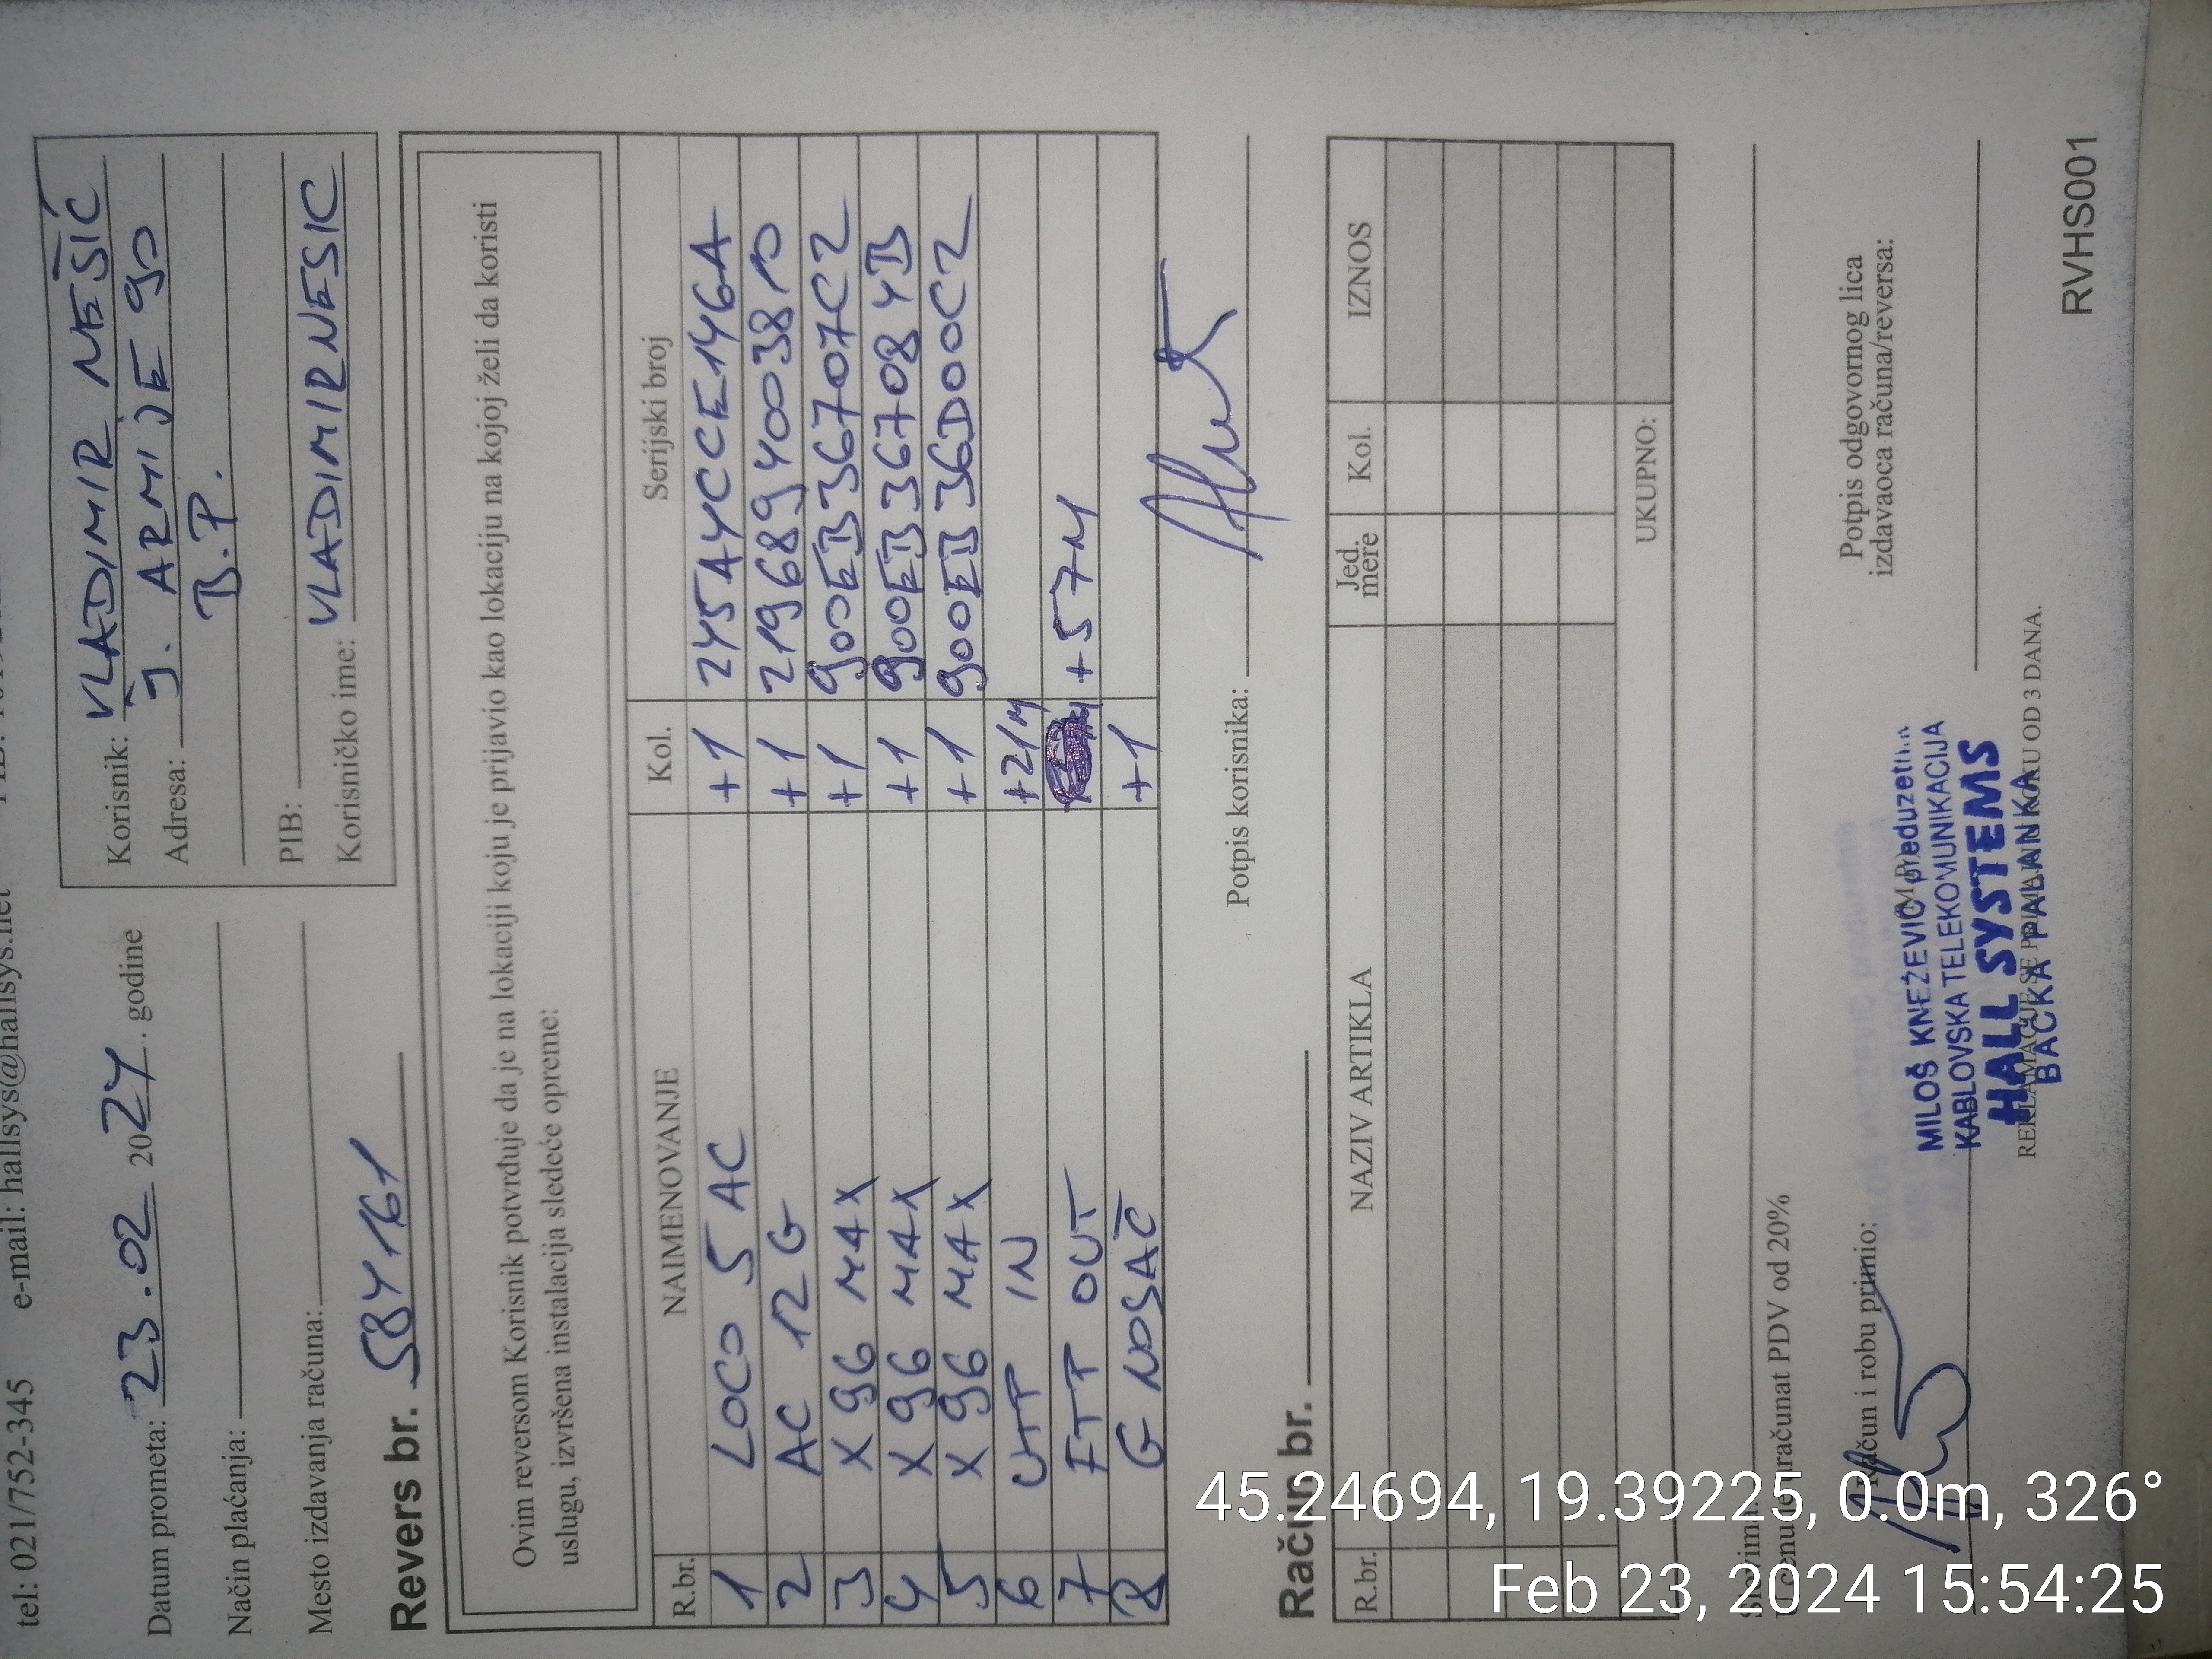 tel: 021/752-345 e-mail: hallsys@hallsys.net
Datum prometa: 23.02 2024. godine
Način plaćanja:
Mesto izdavanja računa:
Korisnik: VLADIMIR NEŠIĆ
Adresa: J. ARMIJE 90
B.P.
PIB:
Korisničko ime: VLADIMIRNESIC
Revers br. 584161
Ovim reversom Korisnik potvrđuje da je na lokaciji koju je prijavio kao lokaciju na kojoj želi da koristi
uslugu, izvršena instalacija sledeće opreme:
R.br. NAIMENOVANJE Kol. Serijski broj
1 LOCO 5 AC +1 245A4CCE146A
2 AC 12 G +1 2196894003810
3 X 96 MAX +1 900EB36707C2
4 X 96 MAX +1 900EB367084B
5 X 96 MAX +1 900EB36D00C2
6 UTP IN +21M
7 FTP OUT +57M
8 G NOSAČ +1
Potpis korisnika:
Račun br.
R.br. NAZIV ARTIKLA Jed. mere Kol. IZNOS
UKUPNO:
Slovima:
U cenu je uračunat PDV od 20%
Račun i robu primio:
Potpis odgovornog lica
izdavaoca računa/reversa:
MILOŠ KNEŽEVIĆ preduzetnik
KABLOVSKA TELEKOMUNIKACIJA
HALL SYSTEMS
BAČKA PALANKA
REKLAMACIJE SE PRIMAJU U ROKU OD 3 DANA.
RVHS001
45.24694, 19.39225, 0.0m, 326°
Feb 23, 2024 15:54:25